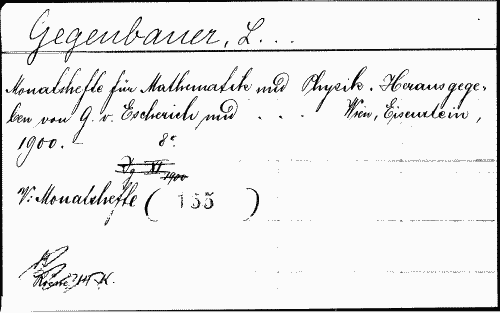 Gegenbauer, L...
Monatshefte für Mathematik und Physik. Herausgege-
ben von G. v. Escherich und . . . Wien, Eisenstein,
1900. - 8°.
Jg XI 1900
V: Monatshefte ( 155 )
K.